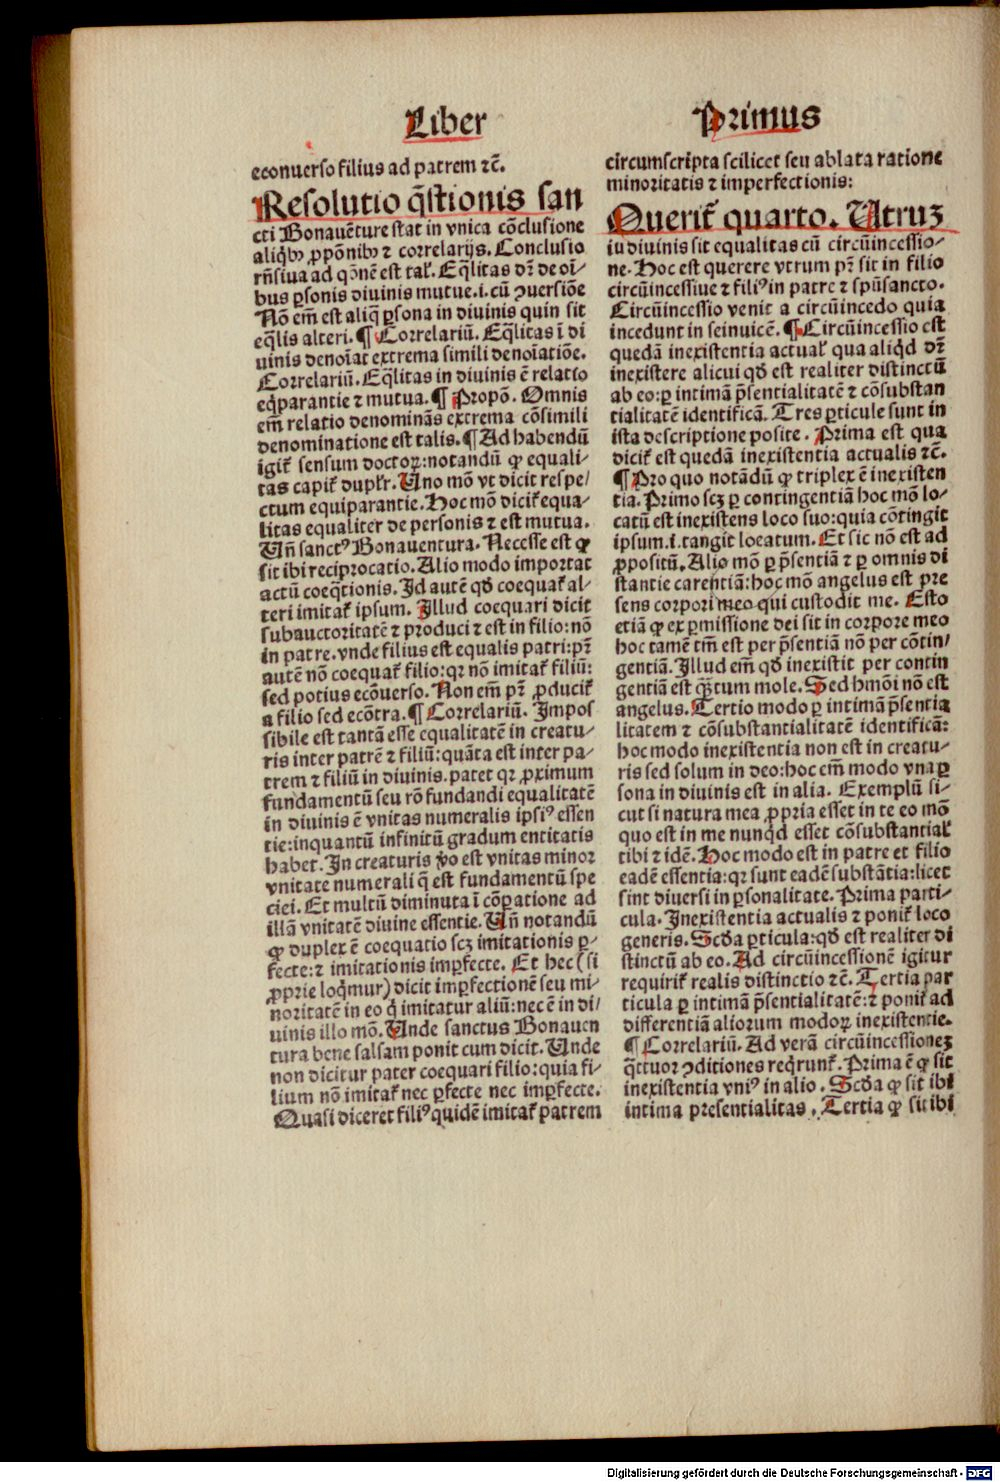 Liber
Primus
econuerso filius ad patrem ⁊c̄.
Resolutio q̄stionis san
cti Bonauēture stat in vnica cōclusione
aliqͥbꝫ ꝓpōnibꝫ ⁊ correlarijs. Conclusio
rn̄siua ad qōnē est tal̕. Eq̄litas dr̄ de oī-
bus ꝑsonis diuinis mutue.i.cū ꝯuersiōe
Nō em̄ est aliq̄ ꝑsona in diuinis quin sit
eq̄lis alteri. ¶ Correlariū. Eq̄litas ī di
uinis denoīat extrema simili denoīatiōe.
Correlariū. Eq̄litas in diuinis ē relatio
eq̄parantie ⁊ mutua. ¶ Propō. Omnis
em̄ relatio denominās extrema cōsimili
denominatione est talis. ¶ Ad habendū
igit̕ sensum doctoꝝ: notandū ꝙ equali-
tas capit̕ duplr̕. Uno mō vt dicit respe-
ctum equiparantie. Hoc mō dicit̕ equa-
litas equaliter de personis ⁊ est mutua.
Un̄ sanctꝰ Bonauentura. Necesse est ꝙ
sit ibi reciprocatio. Alio modo importat
actū coeq̄tionis. Id autē qd̄ coequat̕ al-
teri imitat̕ ipsum. Illud coequari dicit
subauctoritatē ⁊ produci ⁊ est in filio: nō
in patre. vnde filius est equalis patri: pr̄
autē nō coequat̕ filio: qꝛ nō imitat̕ filiū:
sed potius ecōuerso. Non em̄ pr̄ ꝓducit̕
a filio sed ecōtra. ¶ Correlariū. Impos
sibile est tantā esse equalitatē in creatu-
ris inter patrē ⁊ filiū: quāta est inter pa-
trem ⁊ filiū in diuinis. patet qꝛ ꝓximum
fundamentū seu rō fundandi equalitatē
in diuinis ē vnitas numeralis ipsiꝰ essen
tie: inquantū infinitū gradum entitatis
habet. In creaturis v̄o est vnitas minor
vnitate numerali q̄ est fundamentū spe
ciei. Et multū diminuta ī cōꝑatione ad
illā vnitatē diuine essentie. Un̄ notandū
ꝙ duplex ē coequatio scꝫ imitationis ꝑ-
fecte: ⁊ imitationis imꝑfecte. Et hec (si
ꝓprie loq̄mur) dicit imꝑfectionē seu mi-
noritatē in eo qͥ imitatur aliū: nec ē in di-
uinis illo mō. Unde sanctus Bonauen
tura bene salsam ponit cum dicit. Unde
non dicitur pater coequari filio: quia fi-
lium nō imitat̕ nec ꝑfecte nec imꝑfecte.
Quasi diceret filiꝰ quidē imitat̕ patrem
circumscripta scilicet seu ablata ratione
minoritatis ⁊ imperfectionis:
Querit̕ quarto. Utruꝫ
in diuinis sit equalitas cū circūincessio-
ne. Hoc est querere vtrum pr̄ sit in filio
circūincessiue ⁊ filiꝰ in patre ⁊ spūsancto.
Circūincessio venit a circūincedo quia
incedunt in seinuicē. ¶ Circūincessio est
quedā inexistentia actual̕ qua aliqͥd dr̄
inexistere alicui qd̄ est realiter distinctū
ab eo: ꝑ intimā p̄sentialitatē ⁊ cōsubstan
tialitatē identificā. Tres ꝑticule sunt in
ista descriptione posite. Prima est qua
dicit̕ est quedā inexistentia actualis ⁊c̄.
¶ Pro quo notādū ꝙ triplex ē inexisten
tia. Primo scꝫ ꝑ contingentiā hoc mō lo-
catū est inexistens loco suo: quia cōtingit
ipsum.i.tangit locatum. Et sic nō est ad
ꝓpositū. Alio mō ꝑ p̄sentiā ⁊ ꝑ omnis di
stantie carentiā: hoc mō angelus est pre
sens corpori meo qui custodit me. Esto
etiā ꝙ ex ꝑmissione dei sit in corpore meo
hoc tamē tm̄ est per p̄sentiā nō per cōtin-
gentiā. Illud em̄ qd̄ inexistit per contin
gentiā est q̄ꝫtum mole. Sed hmōi nō est
angelus. Tertio modo ꝑ intimā p̄sentia
litatem ⁊ cōsubstantialitatē identificā:
hoc modo inexistentia non est in creatu-
ris sed solum in deo: hoc em̄ modo vna ꝑ
sona in diuinis est in alia. Exemplū si-
cut si natura mea ꝓpria esset in te eo mō
quo est in me nunqͥd esset cōsubstantial̕
tibi ⁊ idē. Hoc modo est in patre et filio
eadē essentia: qꝛ sunt eadē substātia: licet
sint diuersi in ꝑsonalitate. Prima parti-
cula. Inexistentia actualis ⁊ ponit̕ loco
generis. Scd̄a ꝑticula: qd̄ est realiter di
stinctū ab eo. Ad circūincessionē igitur
requirit̕ realis distinctio ⁊c̄. Tertia par
ticula ꝑ intimā p̄sentialitatē: ⁊ ponit̕ ad
differentiā aliorum modoꝝ inexistentie.
¶ Correlariū. Ad verā circūincessioneꝫ
q̄ttuor ꝯditiones reqͥrunt̕. Prima ē ꝙ sit
inexistentia vniꝰ in alio. Scd̄a ꝙ sit ibi
intima presentialitas. Tertia ꝙ sit ibi
Digitalisierung gefördert durch die Deutsche Forschungsgemeinschaft - DFG